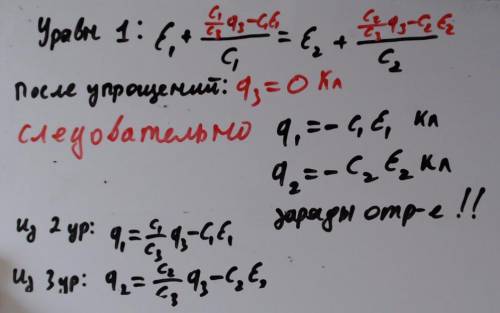 Уравн 1: E₁ + (C₁/C₃ q₃ - C₁E₁)/C₁ = E₂ + (C₂/C₃ q₃ - C₂E₂)/C₂
После упрощений: q₃ = 0 Кл
следовательно q₁ = - C₁ E₁ Кл
q₂ = - C₂ E₂ Кл
заряды отр-е !!
Из 2 ур: q₁ = C₁/C₃ q₃ - C₁E₁
Из 3 ур: q₂ = C₂/C₃ q₃ - C₂E₂